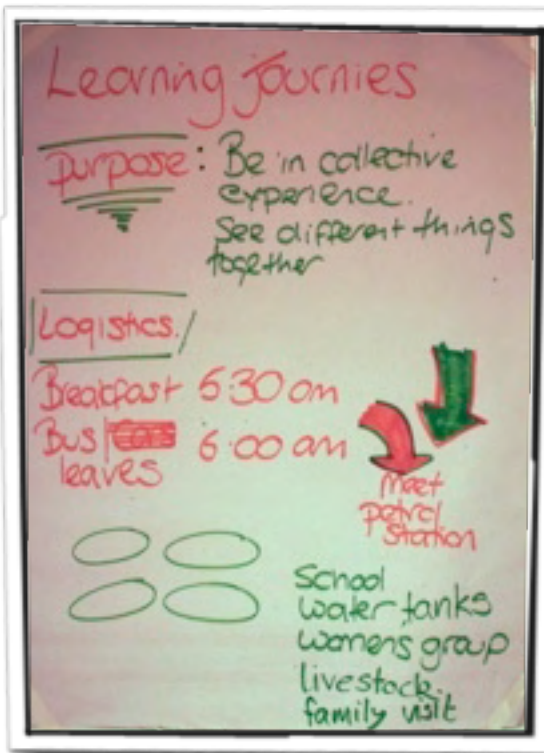 Learning Journies
Purpose: Be in collective
experience.
See different things
together
Logistics.
Breakfast 5:30 am
Bus / Cars 6:00 am
leaves
Meet
petrol
station
School
water tanks
womens group
livestock.
family visit